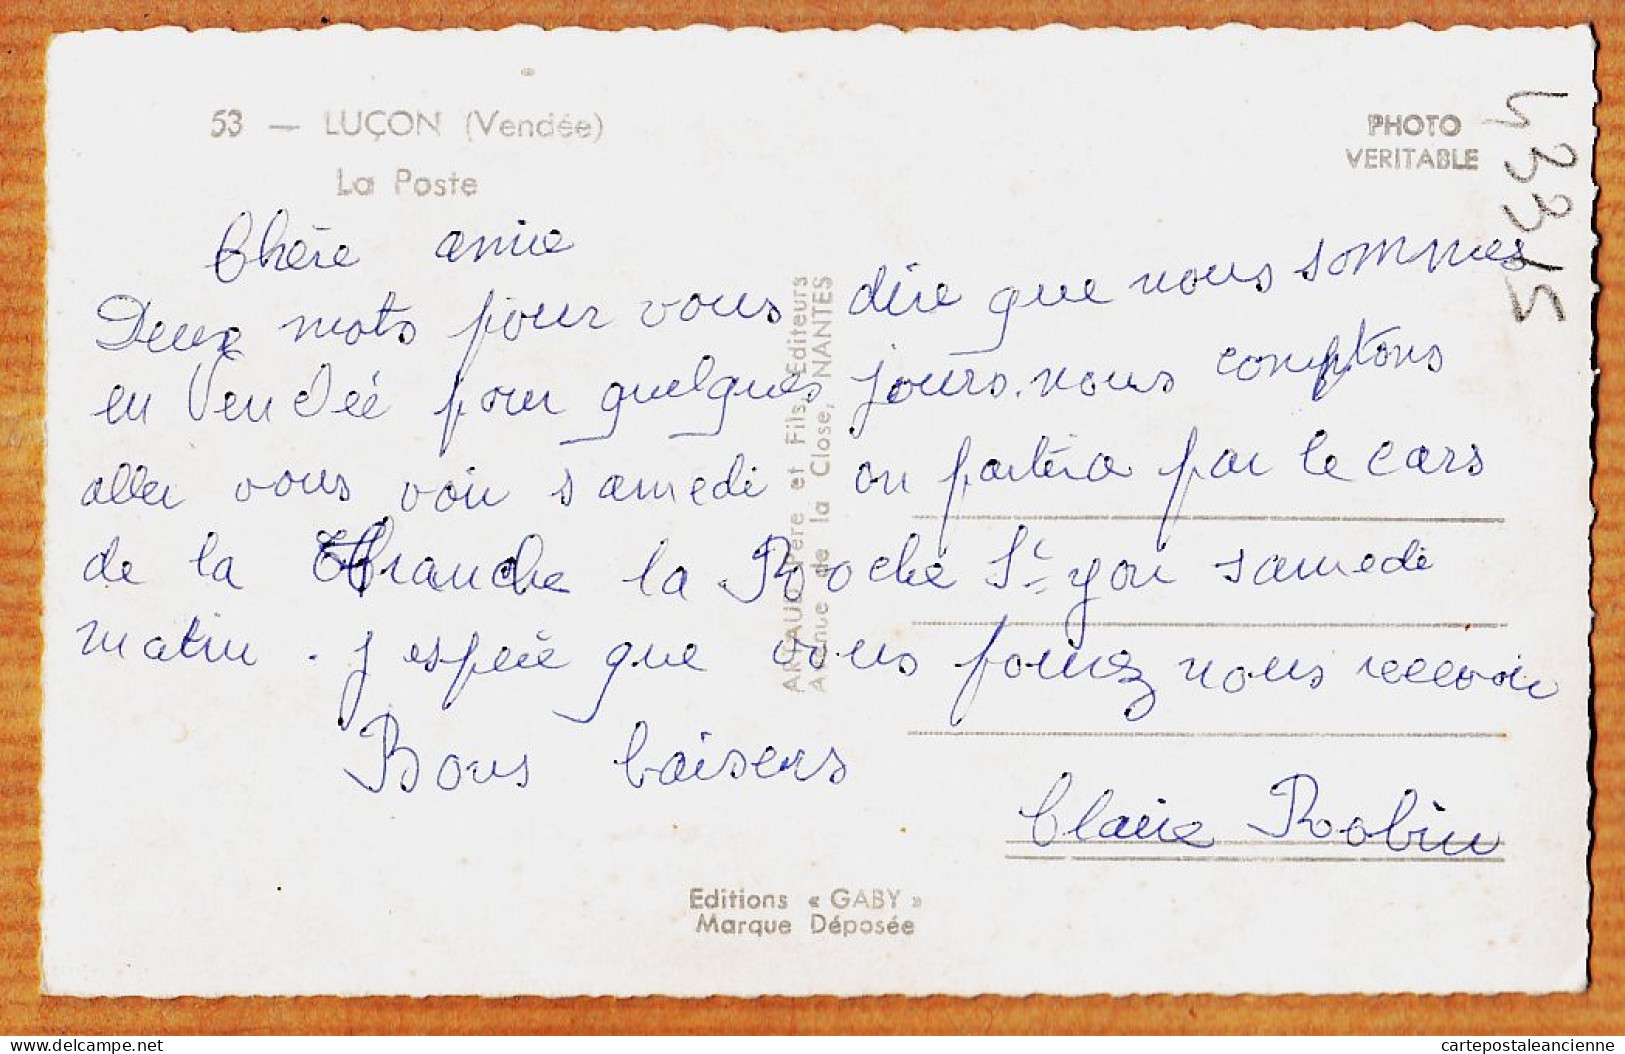 53 — LUÇON (Vendée)
La Poste
PHOTO
VERITABLE
43315
Chère amie
Deux mots pour vous dire que nous sommes
en Vendée pour quelques jours. nous comptons
aller vous voir samedi on partira par le cars
de la Tranche la Roche St yon samedi
matin. j espère que vous pourez nous recevoir
Bons baisers
Claire Robin
ARTAUD Père et Fils, Editeurs
Avenue de la Close, NANTES
Editions « GABY »
Marque Déposée
www.delcampe.net
cartepostaleancienne